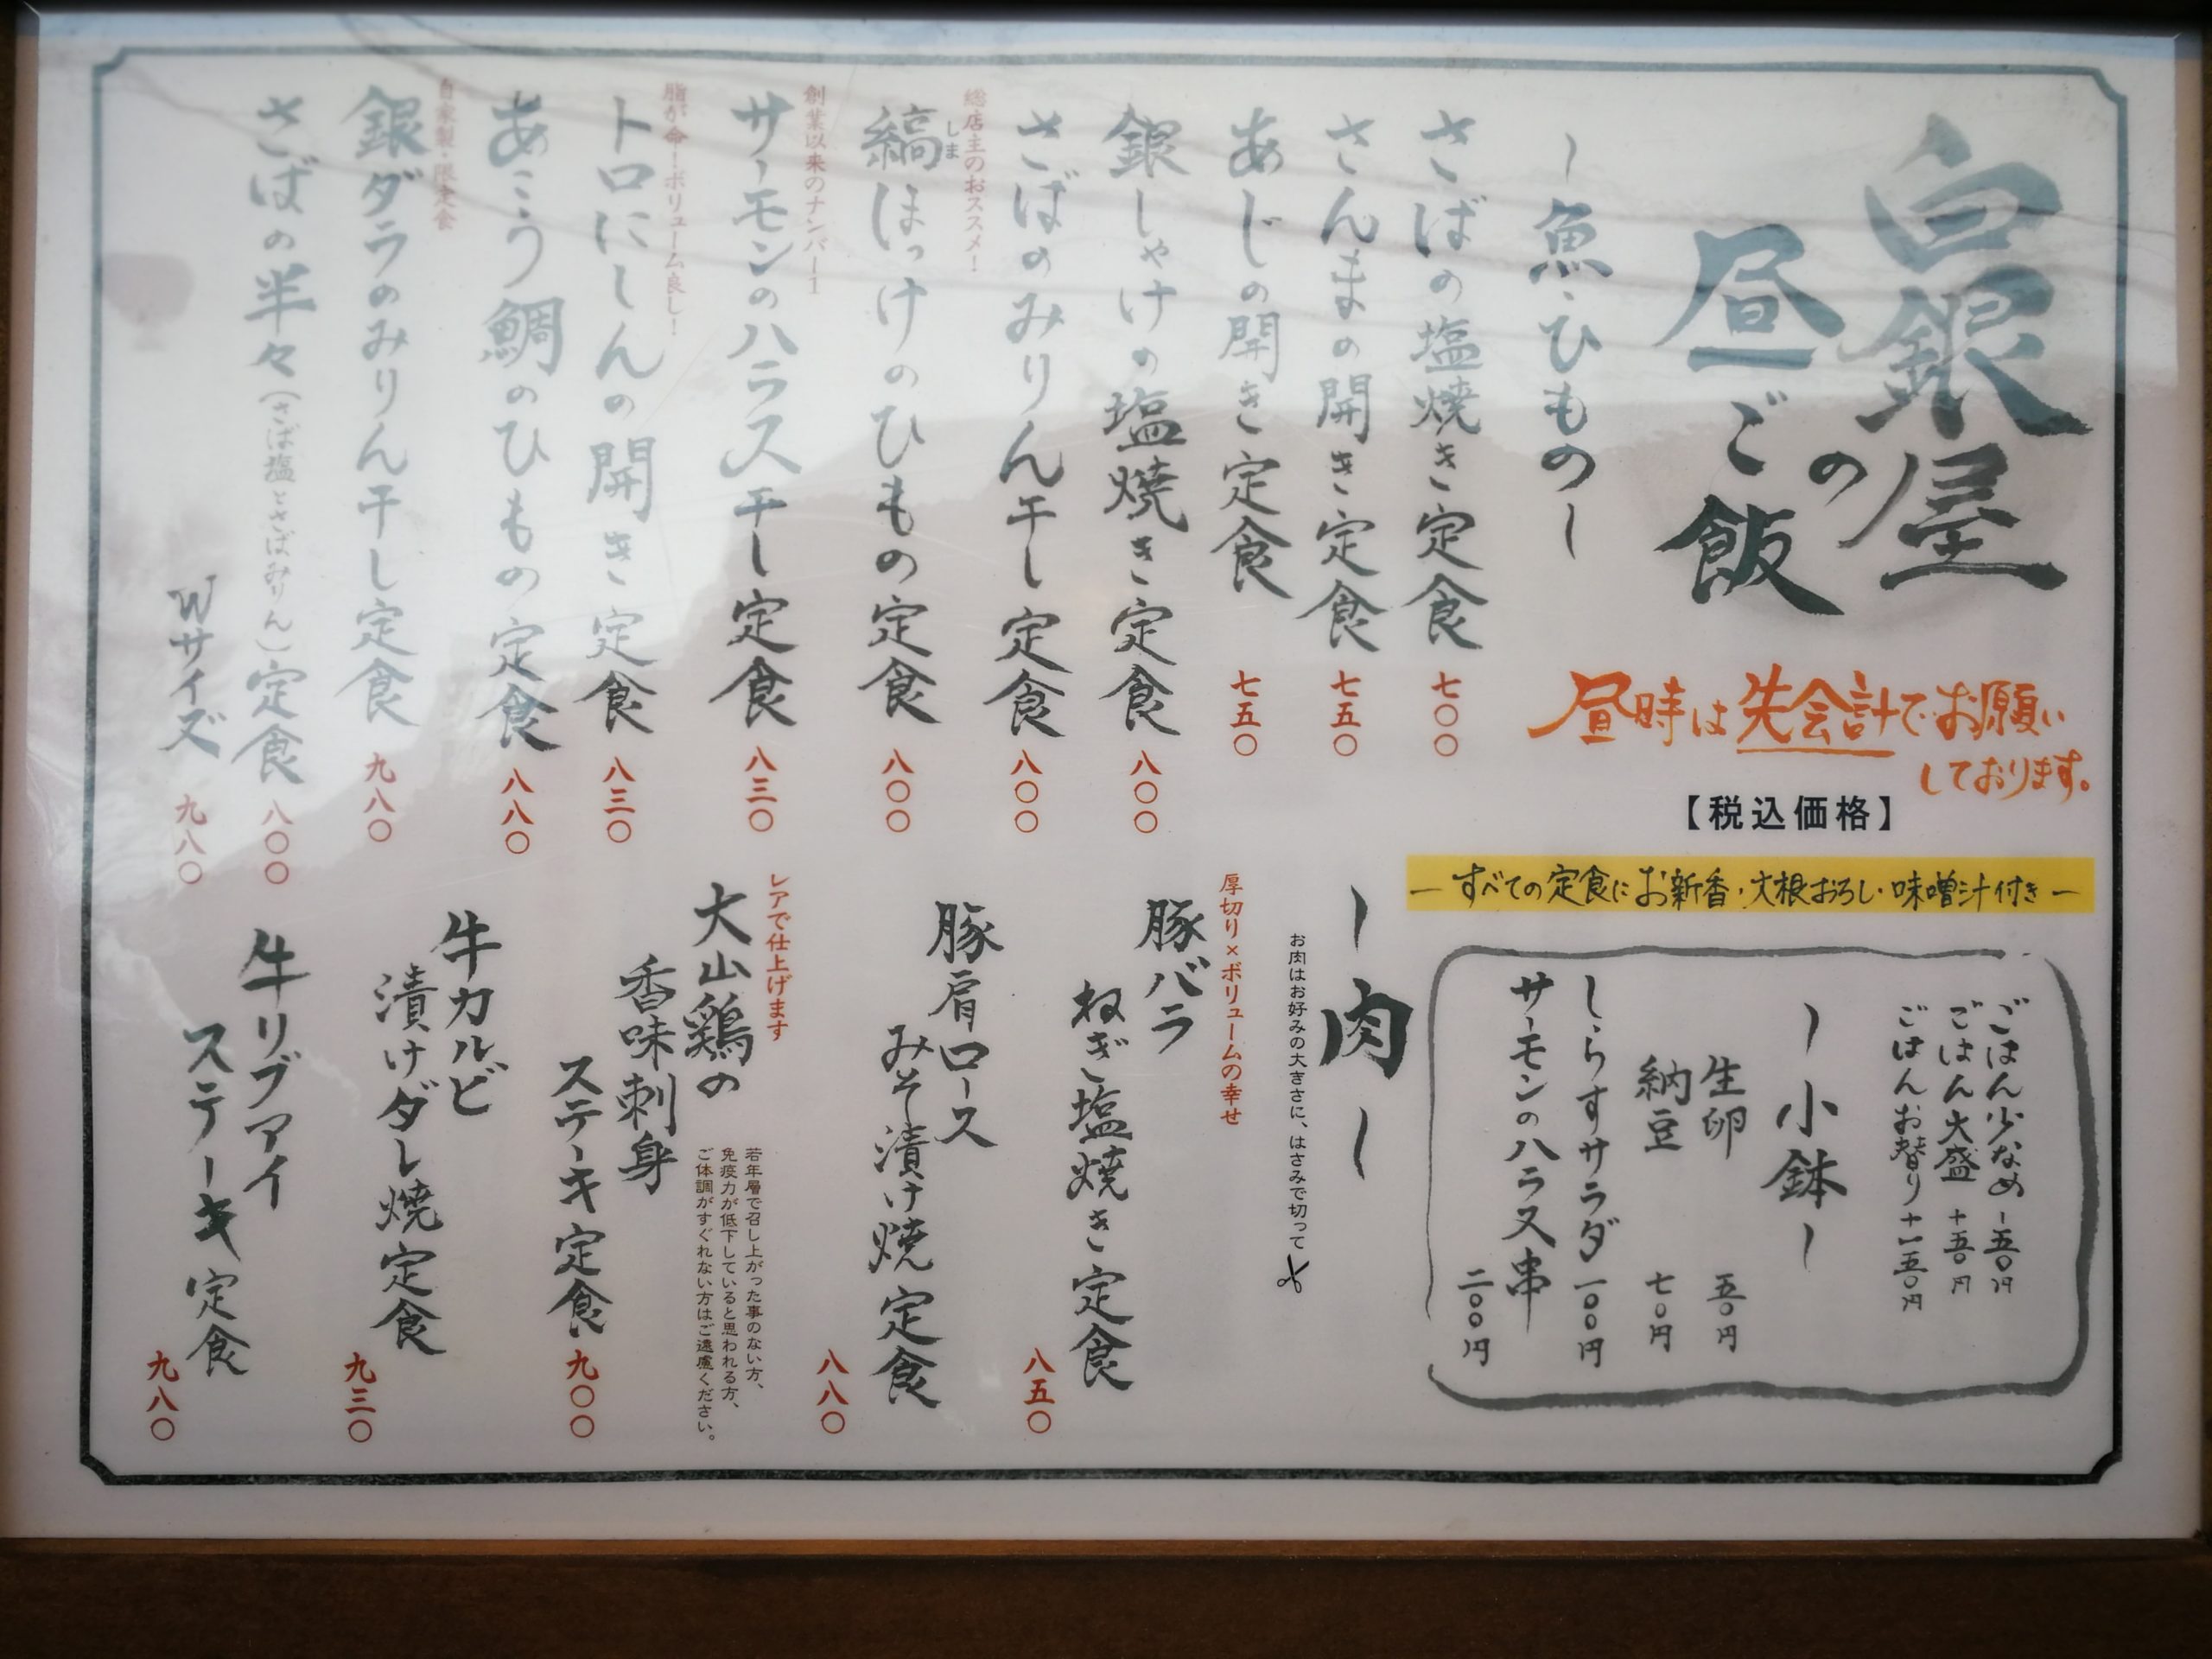 白銀屋
の
昼ご飯
昼時は先会計でお願い
しております。
【税込価格】
―すべての定食にお新香・大根おろし・味噌汁付き―
～魚・ひもの～
さばの塩焼き定食 七〇〇
さんまの開き定食 七五〇
あじの開き定食 七五〇
銀しゃけの塩焼き定食 八〇〇
さばのみりん干し定食 八〇〇
総店主のおススメ！
縞ほっけのひもの定食 八〇〇
しま
創業以来のナンバー１
サーモンのハラス干し定食 八三〇
脂が命！ボリューム良し！
トロにしんの開き定食 八三〇
あこう鯛のひもの定食 八八〇
自家製・限定食
銀ダラのみりん干し定食 九八〇
さばの半々（さば塩とさばみりん）定食 八〇〇
Wサイズ 九八〇
ごはん少なめ -五〇円
ごはん大盛 +五〇円
ごはんお替り +一五〇円
～小鉢～
生卵 五〇円
納豆 七〇円
しらすサラダ 一〇〇円
サーモンのハラス串 二〇〇円
～肉～
お肉はお好みの大きさに、はさみで切って
厚切り×ボリュームの幸せ
豚バラ
ねぎ塩焼き定食 八五〇
豚肩ロース
みそ漬け焼定食 八八〇
レアで仕上げます
大山鶏の
香味刺身
ステーキ定食 九〇〇
若年層で召し上がった事のない方、
免疫力が低下していると思われる方、
ご体調がすぐれない方はご遠慮ください。
牛カルビ
漬けダレ焼定食 九三〇
牛リブアイ
ステーキ定食 九八〇